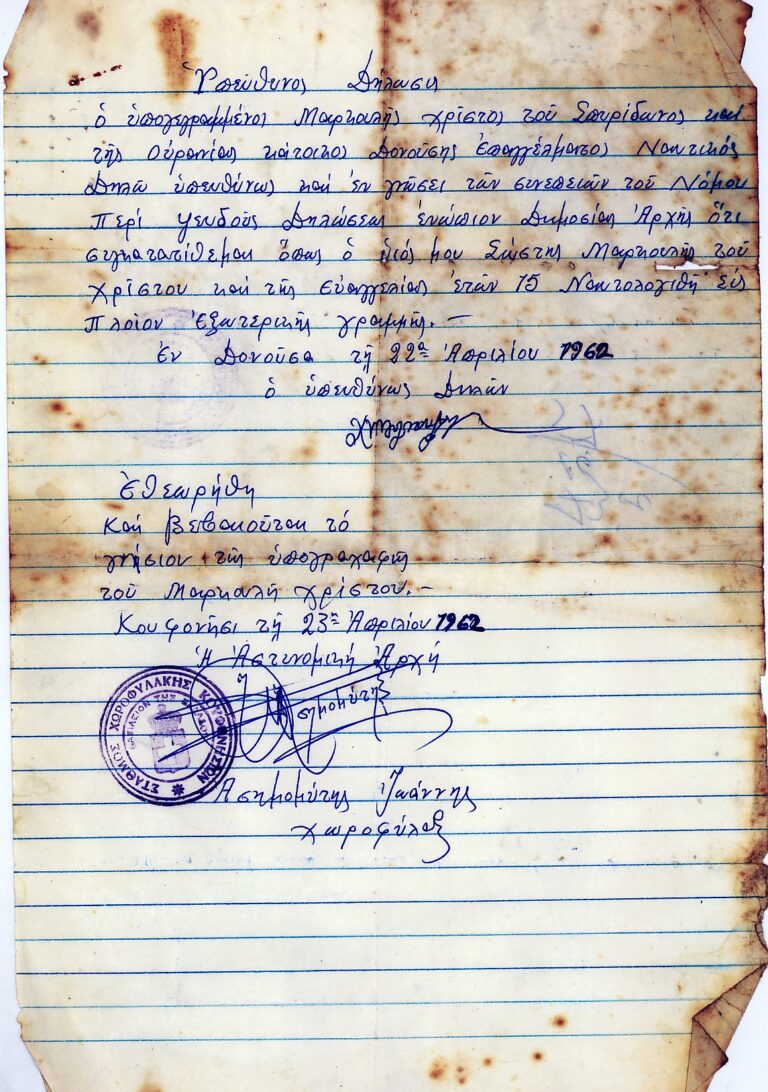 Ὑπεύθυνος Δήλωσις
ὁ ὑπογεγραμμένος Μαρκουλῆς χρῖστος τοῦ Σπυρίδωνος καί
τῆς Οὐρανίας κάτοικος Δονούσης ἐπαγγέλματος Ναυτικός
Δηλῶ ὑπευθύνως καί ἐν γνώσει τῶν συνεπειῶν τοῦ Νόμου
περί ψευδοῦς Δηλώσεως ἐνώπιον Δημοσίας Ἀρχῆς ὅτι
συγκατατίθεμαι ὅπως ὁ υἱός μου Σώστης Μαρκουλῆς τοῦ
χρίστου καί τῆς εὐαγγελίας ἐτῶν 15 Ναυτολογιθῆ εἰς
πλοῖον ἐξωτερικῆς γραμμῆς.—
ἐν Δονούσα τῆ 22α Ἀπριλίου 1962
ὁ ὑπευθύνως Δηλῶν
ἐθεωρήθη
καί βεβαιοῦται τό
γνήσιον τῆς ὑπογραφῆς
τοῦ Μαρκουλῆ χρίστου.—
Κουφονῆσι τῆ 23η Ἀπριλίου 1962
Ἡ Ἀστυνομική Ἀρχή
ΣΤΑΘΜΟΣ ΧΩΡΟΦΥΛΑΚΗΣ ΚΟΥΦΟΝΗΣΙΩΝ
ΒΑΣΙΛΕΙΟΝ ΤΗΣ ΕΛΛΑΔΟΣ
Ἀσημομύτης Ἰωάννης
χωροφύλαξ